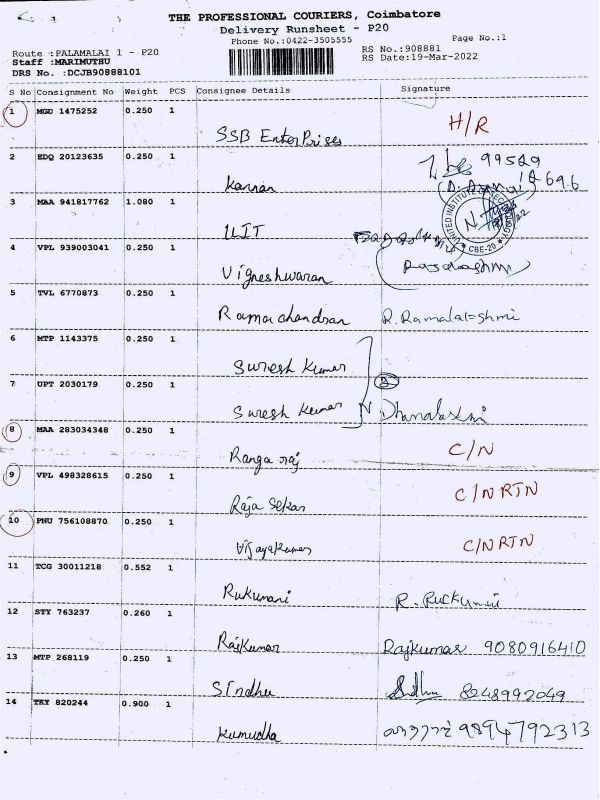 THE PROFESSIONAL COURIERS, Coimbatore
Delivery Runsheet - P20
Phone No.:0422-3505555
Page No.:1
Route :PALAMALAI 1 - P20
Staff :MARIMUTHU
DRS No. :DCJB90888101
RS No.:908881
RS Date:19-Mar-2022
S No Consignment No Weight PCS Consignee Details Signature
1 MGD 1475252 0.250 1
SSB Enterprises H/R
2 EDQ 20123635 0.250 1
Kannan 99529
696
3 MAA 941817762 1.080 1
UNITED INSTITUTE OF TECHNOLOGY
★ CBE-20 ★
4 VPL 939003041 0.250 1
Vigneshwaran
5 TVL 6770873 0.250 1
Ramachandran R. Ramalakshmi
6 MTP 1143375 0.250 1
Suresh Kumar
7 UPT 2030179 0.250 1
Suresh Kumar N Dhanalaxmi
8 MAA 283034348 0.250 1
Ranga raj C/N
9 VPL 498328615 0.250 1
Raja Sekar C/N RTN
10 PNU 756108870 0.250 1
Vijayakumar C/N RTN
11 TCG 30011218 0.552 1
Rukumani R. Ruckumani
12 STY 763237 0.260 1
RajKumar Rajkumar 9080916410
13 MTP 268119 0.250 1
Sindhu Sindhu 8248992049
14 TKY 820244 0.900 1
Kumudha 9894792313